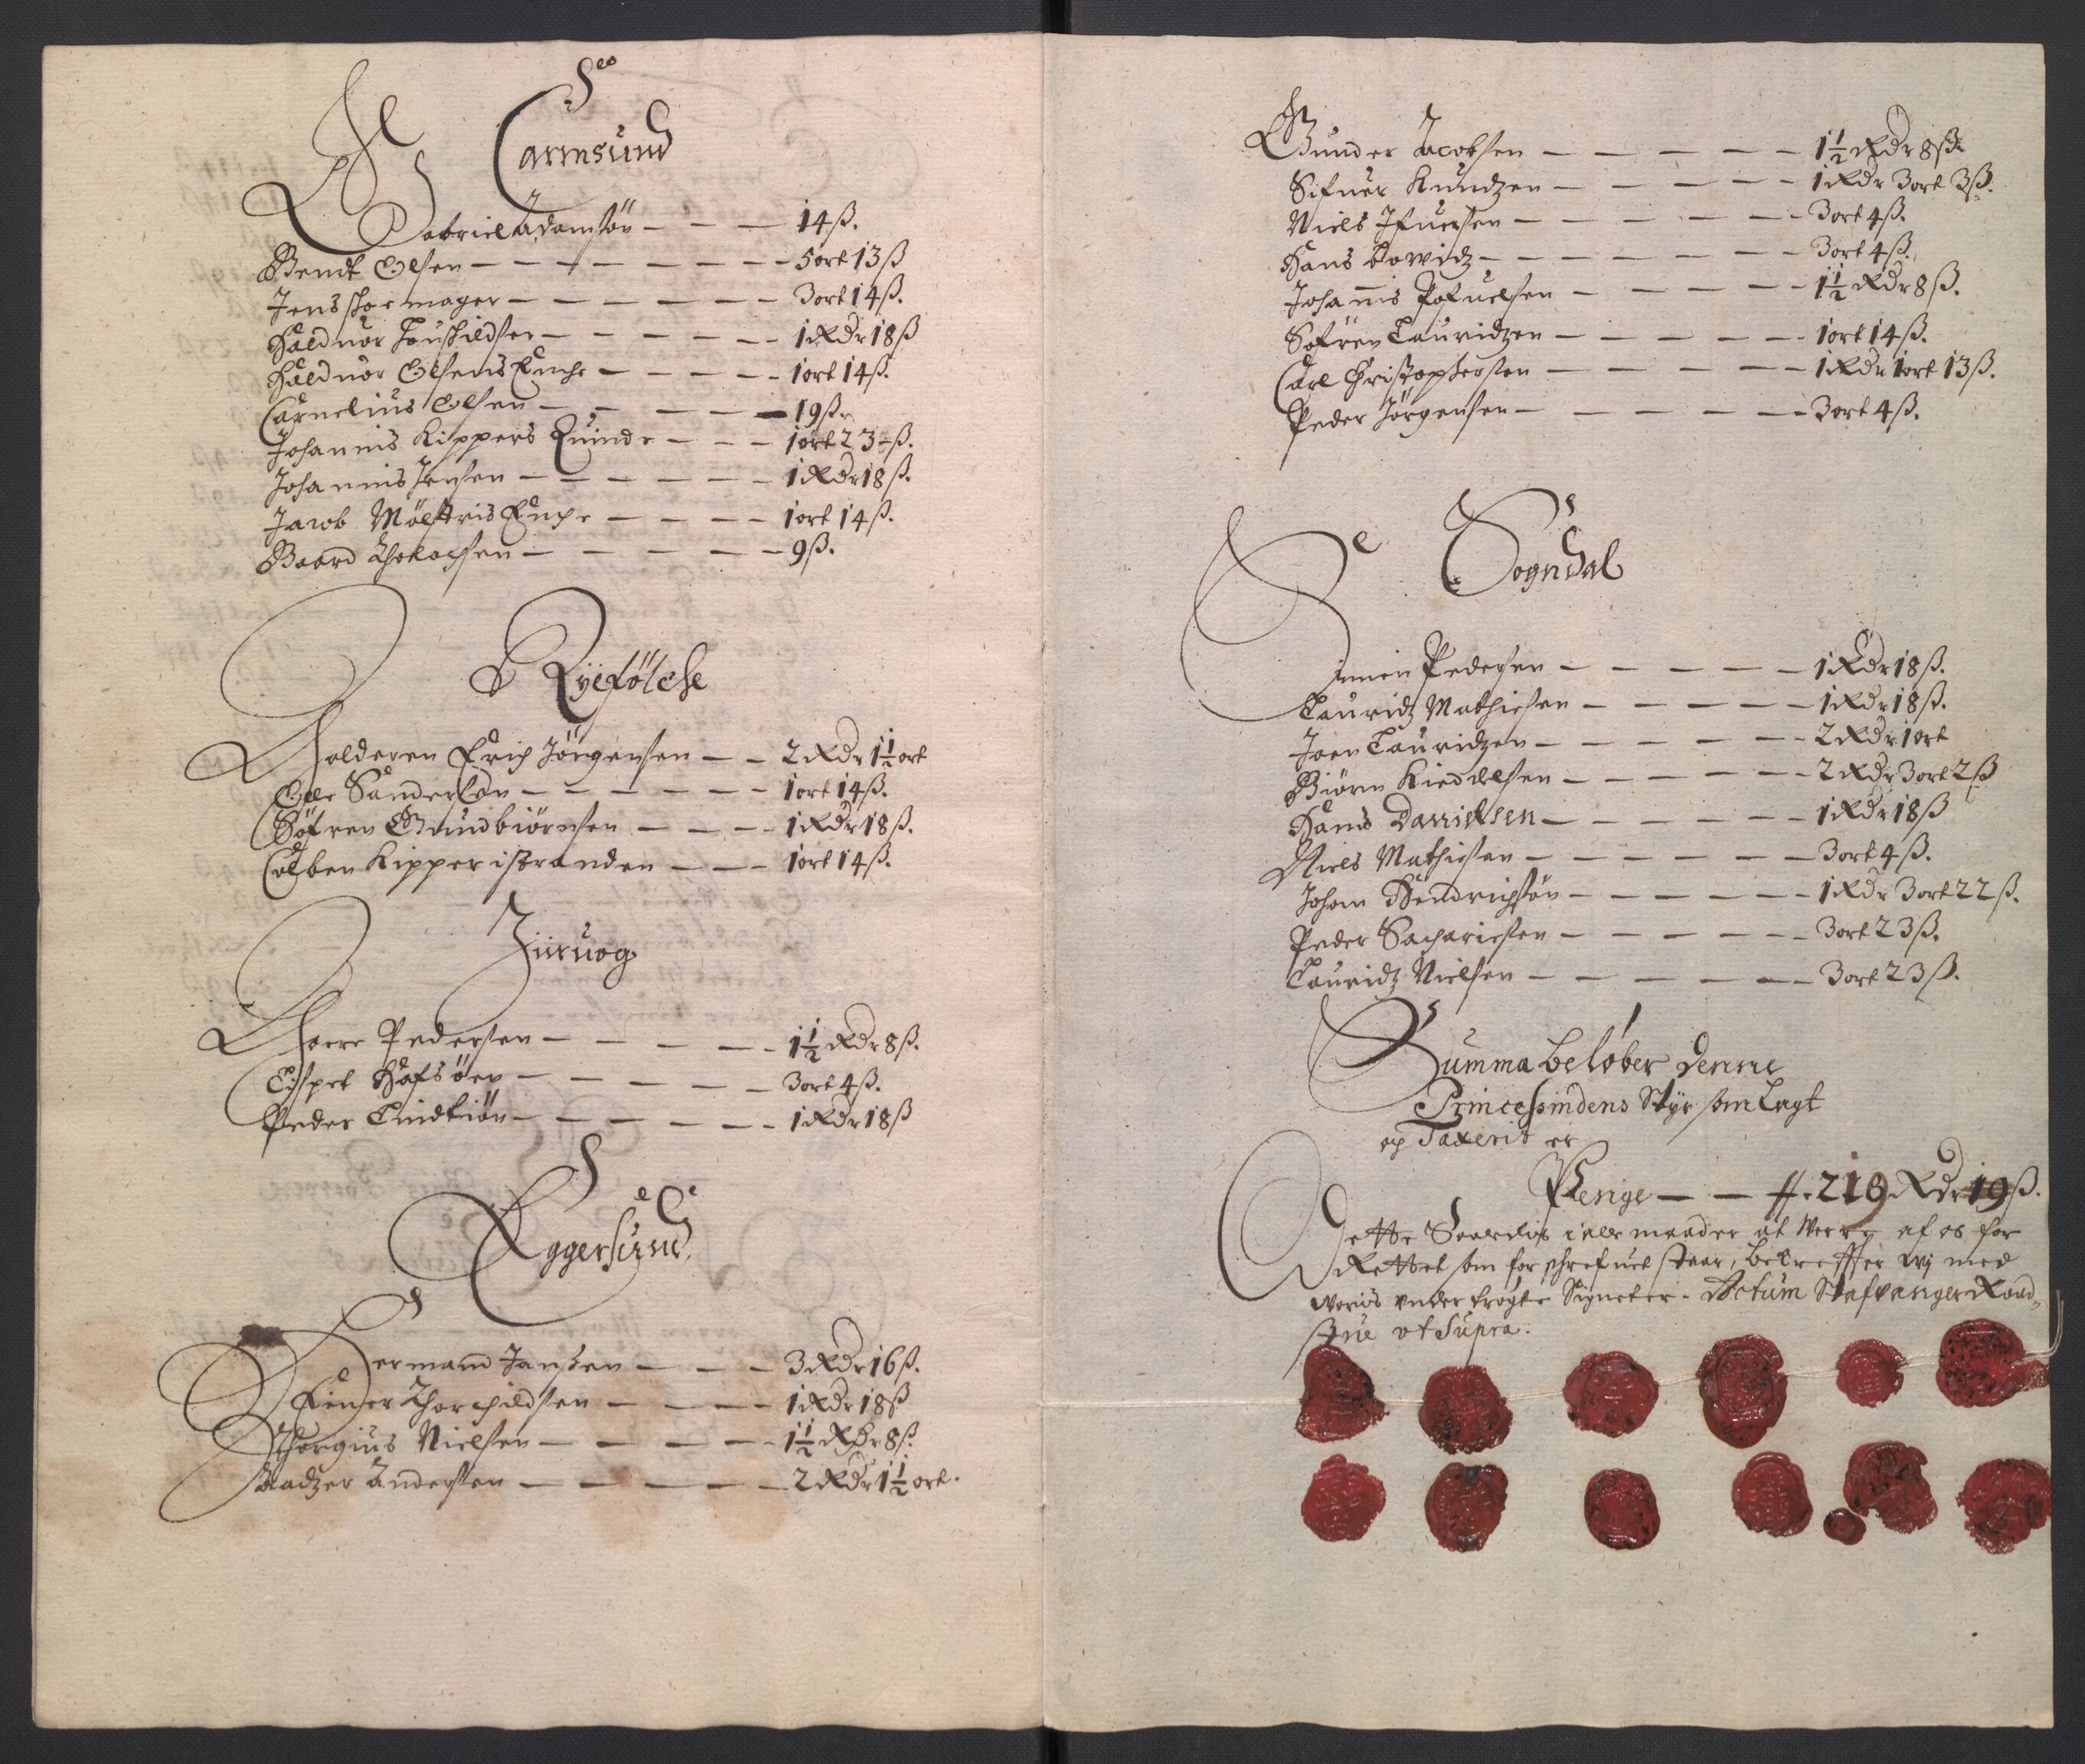 Carmsund
Gabriel Adamsøn — — — 14 ß.
Bendt Olsen — — — — — — — 5 ort 13 ß
Jens Skoemager — — — — — — 3 ort 14 ß.
Halduor Touskildsen — — — — — 1 Rdr 18 ß
Halduor Olsens Enche — — — — 1 ort 14 ß.
Carnelius Olsen — — — — — 19 ß.
Johannis Kippers Quinde — — — 1 ort 23 ß.
Johannis Jensen — — — — — — 1 Rdr 18 ß.
Jacob Mølstris Enche — — — — 1 ort 14 ß.
Baard — — — — — 9 ß.
Ryefølche
Holderen Erich Jörgensen — — 2 Rdr 1½ ort
Olle Sandersøn — — — — — — 1 ort 14 ß.
Söfren Gundbiörnsen — — — — 1 Rdr 18 ß.
Colben Kipper i stranden — — — 1 ort 14 ß.
Jiiruog
Thorre Pedersen — — — — — 1½ Rdr 8 ß.
Elspet Hafsöen — — — — — — 3 ort 4 ß.
Peder Lindtiön — — — — — — 1 Rdr 18 ß
Eggersund
Hermand Janssen — — — 3 Rdr 16 ß.
Einer Thorchildsen — — — — 1 Rdr 18 ß
Thorgius Nielsen — — — — — 1½ Rdr 8 ß.
Baltzer Andersen — — — — — 2 Rdr 1½ ort.
Gunder Jacobsen — — — — — 1½ Rdr 8 ß.
Sifuer Knudzen — — — — — 1 Rdr 3 ort 3 ß.
Niels Ifuersen — — — — — — 3 ort 4 ß.
Hans Lowidz — — — — — — 3 ort 4 ß.
Johannis Pofuelsen — — — — — 1½ Rdr 8 ß.
Sofren Lauridzen — — — — — 1 ort 14 ß.
Carl Christophersen — — — — — 1 Rdr 1 ort 13 ß.
Peder Jörgensen — — — — — — 3 ort 4 ß.
Sogndal
Simen Pedersen — — — — — 1 Rdr 18 ß.
Lauridz Mathiesen — — — — — 1 Rdr 18 ß.
Joen Lauridzen — — — — — — 2 Rdr 1 ort
Biörn Kieddelsen — — — — — — 2 Rdr 3 ort 2 ß
Hans Danielsen — — — — — 1 Rdr 18 ß
Niels Mathiesen — — — — — — 3 ort 4 ß.
Johan Hendrichsøn — — — — — 1 Rdr 3 ort 22 ß.
Peder Sachariesen — — — — — 3 ort 23 ß.
Lauridz Nielsen — — — — — — 3 ort 23 ß.
Summa beløber denne
Princessindens Styr som Lagt
og Taxerit er
Penge — — 219 Rdr 19 ß.
Dette Saaledis i alle maader at Werre af os for
Rettet som forschrefuet staar, bekreffter wj med
woris vnder trögte Signeter. Actum Stafvanger Raad-
stue vt Supra.